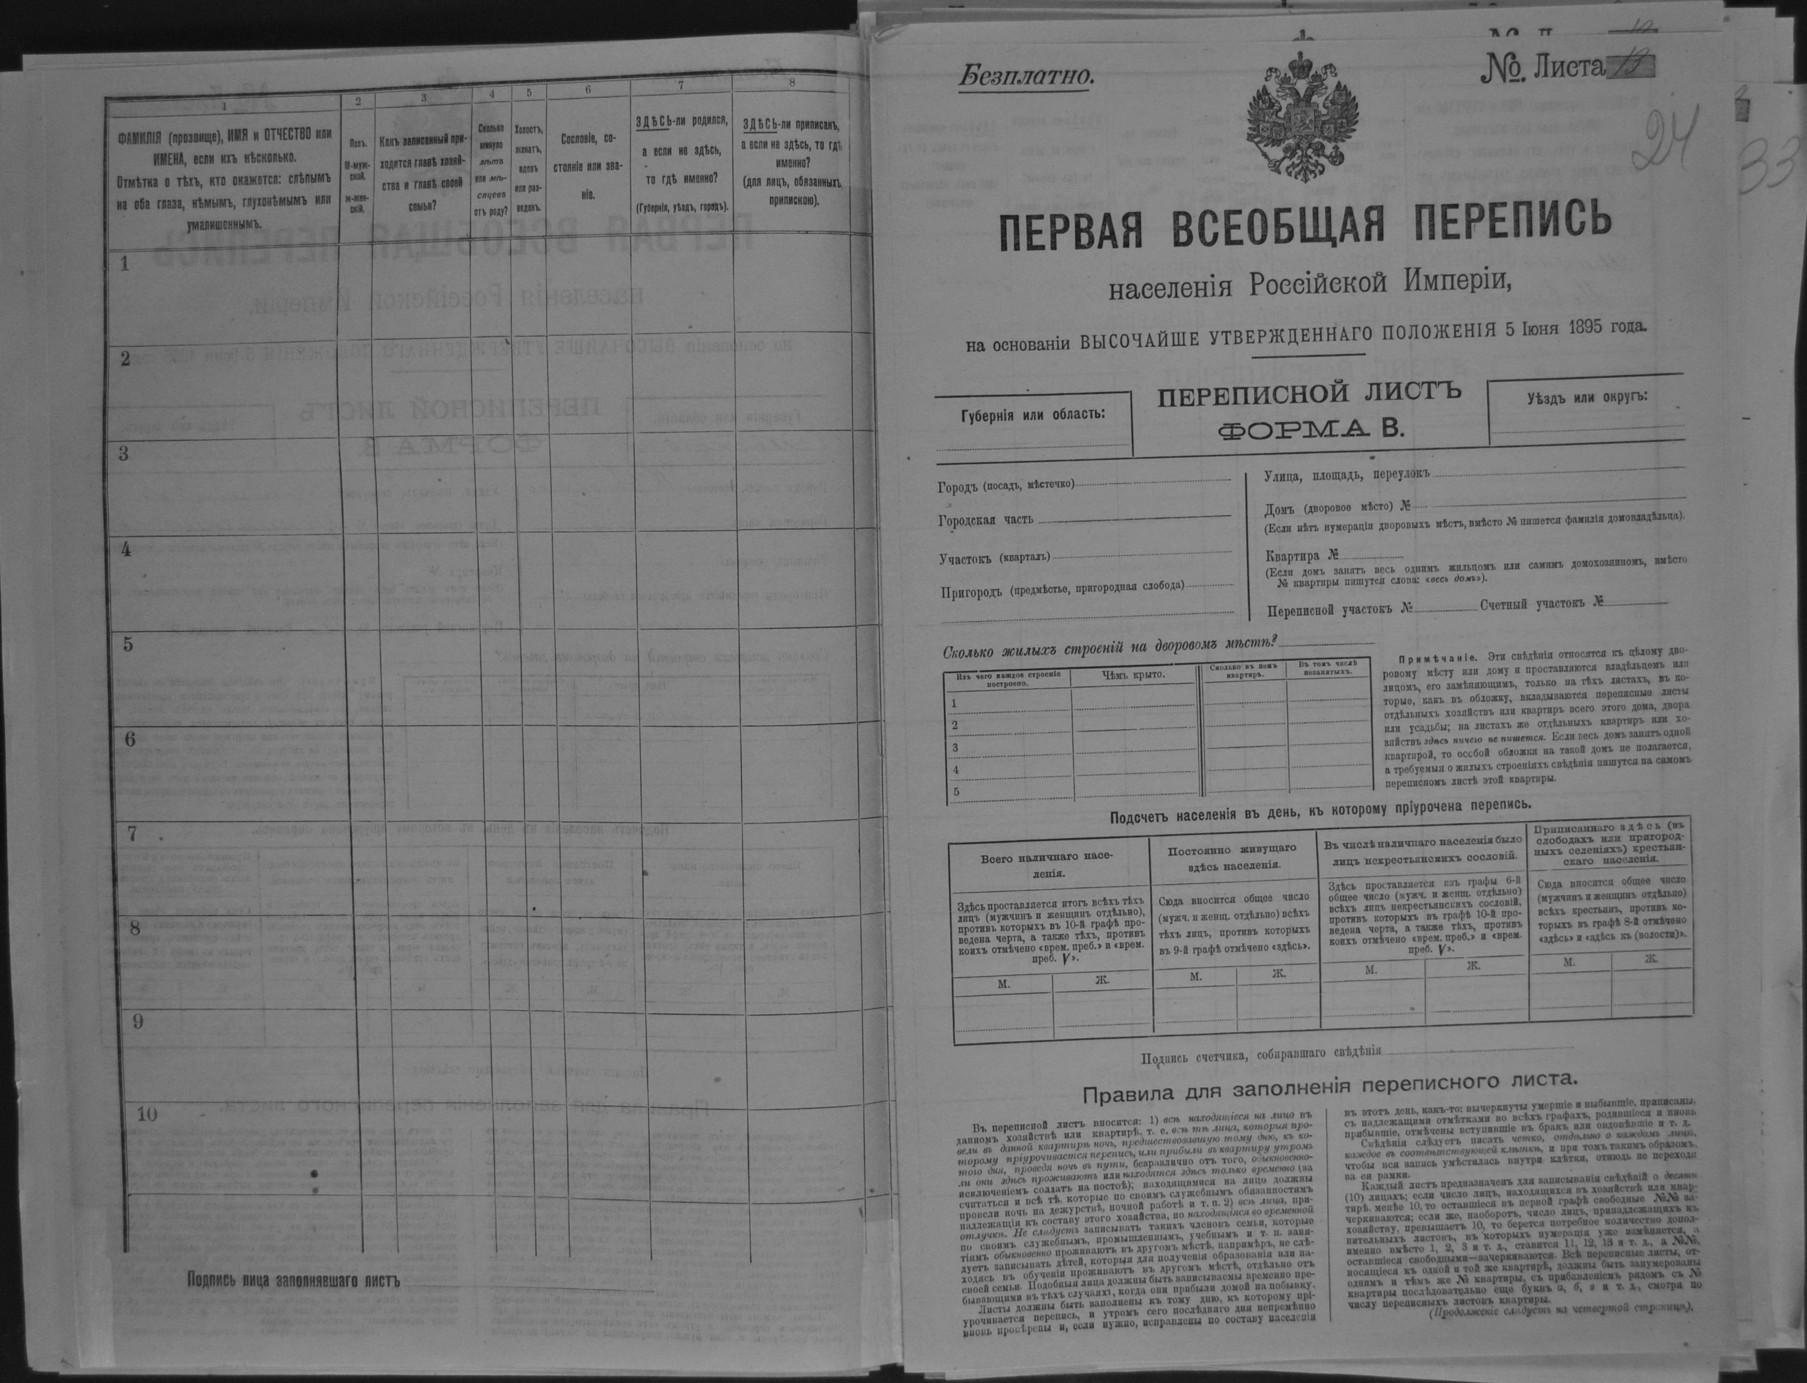 1 2 3 4 5 6 7 8
ФАМИЛІЯ (прозвище), ИМЯ и ОТЧЕСТВО или
ИМЕНА, если ихъ нѣсколько.
Отмѣтка о тѣхъ, кто окажется: слѣпымъ
на оба глаза, нѣмымъ, глухонѣмымъ или
умалишеннымъ.
Полъ.
М-муж-
ской.
ж-жен-
скій.
Какъ записанный при-
ходится главѣ хозяй-
ства и главѣ своей
семьи?
Сколько
минуло
лѣтъ
или мѣ-
сяцевъ
отъ роду?
Холостъ,
женатъ,
вдовъ
или раз-
веденъ.
Сословіе, со-
стояніе или зва-
ніе.
ЗДѢСЬ-ли родился,
а если не здѣсь,
то гдѣ именно?
(Губернія, уѣздъ, городъ).
ЗДѢСЬ-ли приписанъ,
а если не здѣсь, то гдѣ
именно?
(для лицъ, обязанныхъ
припискою).
1
2
3
4
5
6
7
8
9
10
Подпись лица заполнявшаго листъ
Безплатно.
№. Листа 13
24
33
ПЕРВАЯ ВСЕОБЩАЯ ПЕРЕПИСЬ
населенія Россійской Имперіи,
на основаніи ВЫСОЧАЙШЕ УТВЕРЖДЕННАГО ПОЛОЖЕНІЯ 5 Іюня 1895 года.
Губернія или область:
ПЕРЕПИСНОЙ ЛИСТЪ
ФОРМА В.
Уѣздъ или округъ:
Городъ (посадъ, мѣстечко)
Городская часть
Участокъ (кварталъ)
Пригородъ (предмѣстье, пригородная слобода)
Улица, площадь, переулокъ
Домъ (дворовое мѣсто) №
(Если нѣтъ нумераціи дворовыхъ мѣстъ, вмѣсто № пишется фамилія домовладѣльца).
Квартира №
(Если домъ занятъ весь однимъ жильцомъ или самимъ домохозяиномъ, вмѣсто
№ квартиры пишутся слова: «весь домъ»).
Переписной участокъ № Счетный участокъ №
Сколько жилыхъ строеній на дворовомъ мѣстѣ?
Изъ чего каждое строеніе
построено.
Чѣмъ крыто.
Сколько въ немъ
квартиръ.
Въ томъ числѣ
незанятыхъ.
1
2
3
4
5
Примѣчаніе. Эти свѣдѣнія относятся къ цѣлому дво-
ровому мѣсту или дому и проставляются владѣльцемъ или
лицомъ, его замѣняющимъ, только на тѣхъ листахъ, въ ко-
торые, какъ въ обложку, вкладываются переписные листы
отдѣльныхъ хозяйствъ или квартиръ всего этого дома, двора
или усадьбы; на листахъ же отдѣльныхъ квартиръ или хо-
зяйствъ здѣсь ничего не пишется. Если весь домъ занятъ одной
квартирой, то особой обложки на такой домъ не полагается,
а требуемыя о жилыхъ строеніяхъ свѣдѣнія пишутся на самомъ
переписномъ листѣ этой квартиры.
Подсчетъ населенія въ день, къ которому пріурочена перепись.
Всего наличнаго насе-
ленія.
Здѣсь проставляется итогъ всѣхъ тѣхъ
лицъ (мужчинъ и женщинъ отдѣльно),
противъ которыхъ въ 10-й графѣ про-
ведена черта, а также тѣхъ, противъ
коихъ отмѣчено «врем. преб.» и «врем.
преб. V».
М. Ж.
Постоянно живущаго
здѣсь населенія.
Сюда вносится общее число
(мужч. и женщ. отдѣльно) всѣхъ
тѣхъ лицъ, противъ которыхъ
въ 9-й графѣ отмѣчено «здѣсь».
М. Ж.
Въ числѣ наличнаго населенія было
лицъ некрестьянскихъ сословій.
Здѣсь проставляется изъ графы 6-й
общее число (мужч. и женщ. отдѣльно)
всѣхъ лицъ некрестьянскихъ сословій,
противъ которыхъ въ графѣ 10-й про-
ведена черта, а также тѣхъ, противъ
коихъ отмѣчено «врем. преб.» и «врем.
преб. V».
М. Ж.
Приписаннаго здѣсь (въ
слободахъ или пригород-
ныхъ селеніяхъ) крестьян-
скаго населенія.
Сюда вносится общее число
(мужчинъ и женщинъ отдѣльно)
всѣхъ крестьянъ, противъ ко-
торыхъ въ графѣ 8-й отмѣчено
«здѣсь» и «здѣсь къ (волости)».
М. Ж.
Подпись счетчика, собиравшаго свѣдѣнія
Правила для заполненія переписного листа.
Въ переписной листъ вносятся: 1) всѣ находящіеся на лицо въ
данномъ хозяйствѣ или квартирѣ, т. е. всѣ тѣ лица, которыя про-
вели въ данной квартирѣ ночь, предшествовавшую тому дню, къ ко-
торому пріурочивается перепись, или прибыли въ квартиру утромъ
того дня, проведя ночь въ пути, безразлично отъ того, обыкновенно-
ли они здѣсь проживаютъ или находятся здѣсь только временно (за
исключеніемъ солдатъ на постоѣ); находящимися на лицо должны
считаться и всѣ тѣ, которые по своимъ служебнымъ обязанностямъ
провели ночь на дежурствѣ, ночной работѣ и т. п. 2) всѣ лица, при-
надлежащія къ составу этого хозяйства, но находящіяся во временной
отлучкѣ. Не слѣдуетъ записывать такихъ членовъ семьи, которые
по своимъ служебнымъ, промышленнымъ, учебнымъ и т. п. заня-
тіямъ обыкновенно проживаютъ въ другомъ мѣстѣ, напримѣръ, не слѣ-
дуетъ записывать дѣтей, которыя для полученія образованія или на-
ходясь въ обученіи проживаютъ въ другомъ мѣстѣ, отдѣльно отъ
своей семьи. Подобныя лица должны быть записываемы временно пре-
бывающими въ тѣхъ случаяхъ, когда они прибыли домой на побывку.
Листы должны быть заполнены къ тому дню, къ которому прі-
урочивается перепись, и утромъ сего послѣдняго дня непремѣнно
вновь провѣрены и, если нужно, исправлены по составу населенія
въ этотъ день, какъ-то: вычеркнуты умершіе и выбывшіе, приписаны,
съ надлежащими отмѣтками во всѣхъ графахъ, родившіеся и вновь
прибывшіе, отмѣчены вступившіе въ бракъ или овдовѣвшіе и т. д.
Свѣдѣнія слѣдуетъ писать четко, отдѣльно о каждомъ лицѣ,
каждое въ соотвѣтствующей клѣткѣ, и при томъ такимъ образомъ,
чтобы вся запись умѣстилась внутри клѣтки, отнюдь не переходя
за ея рамки.
Каждый листъ предназначенъ для записыванія свѣдѣній о десяти
(10) лицахъ; если число лицъ, находящихся въ хозяйствѣ или квар-
тирѣ, менѣе 10, то оставшіеся въ первой графѣ свободные №№ за-
черкиваются; если же, наоборотъ, число лицъ, принадлежащихъ къ
хозяйству, превышаетъ 10, то берется потребное количество допол-
нительныхъ листовъ, въ которыхъ нумерація уже измѣняется, а
именно вмѣсто 1, 2, 3 и т. д., ставится 11, 12, 13 и т. д., а №№,
оставшіеся свободными—зачеркиваются. Всѣ переписные листы, от-
носящіеся къ одной и той же квартирѣ, должны быть занумерованы
однимъ и тѣмъ же № квартиры, съ прибавленіемъ рядомъ съ №
квартиры послѣдовательно еще буквъ а, б, в и т. д., смотря по
числу переписныхъ листовъ квартиры.
(Продолженіе слѣдуетъ на четвертой страницѣ).